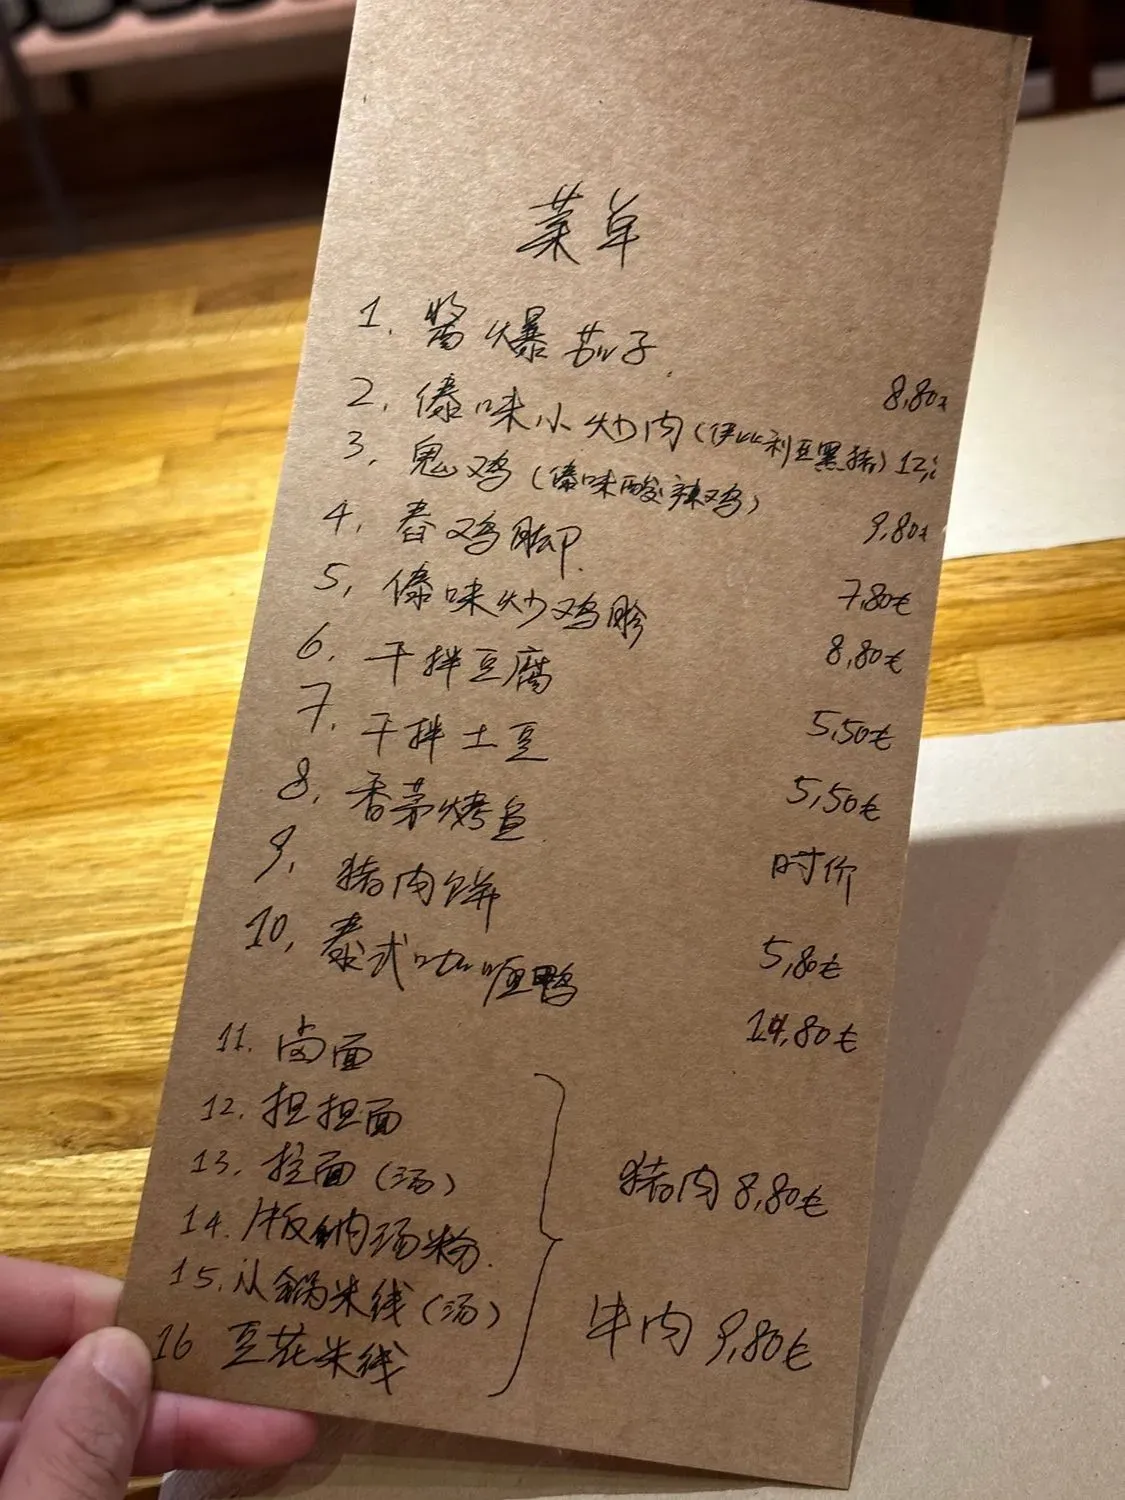 菜单
1. 酱爆茄子 8,80€
2. 傣味小炒肉(伊比利亚黑猪) 12,
3. 鬼鸡(傣味酸辣鸡) 9,80€
4. 舂鸡脚 7,80€
5. 傣味炒鸡胗 8,80€
6. 干拌豆腐 5,50€
7. 干拌土豆 5,50€
8. 香茅烤鱼 时价
9. 猪肉饼 5,80€
10. 泰式咖喱鸭 14,80€
11. 卤面
12. 担担面
13. 拉面(汤) 猪肉 8,80€
14. 版纳汤粉
15. 小锅米线(汤) 牛肉 9,80€
16 豆花米线